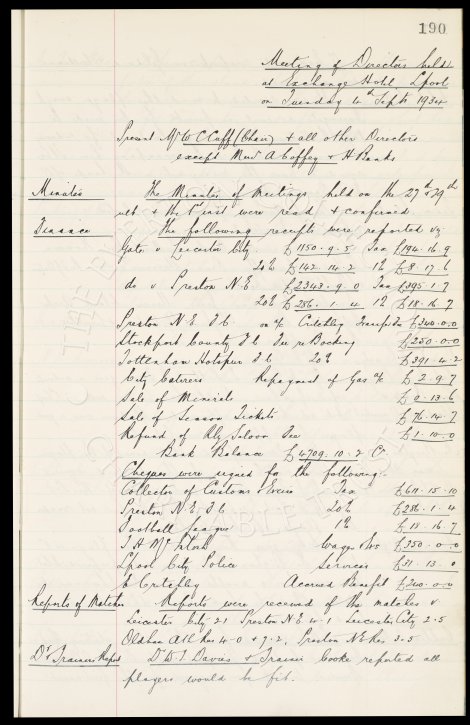 190
Meeting of Directors held
at Exchange Hotel Lpool
on Tuesday 4th Septr 1934
Present Mr W C Cuff (Chair) & all other Directors
except Messrs A Coffey & H Banks
Minutes The Minutes of Meetings held on the 27th & 29th
ult & the 1st inst were read & confirmed
Finance The following receipts were reported viz
Gate v Leicester City £1150.9.5 Tax £194.16.9
20% £142.14.2 1% £8.17.6
do v Preston N.E £2343.9.0 Tax £395.1.7
20% £286.1.4 1% £18.16.7
Preston N.E. F.C. on a/c Critchley Transfer £340.0.0
Stockport County F.C. Fee re Bocking £250.0.0
Tottenham Hotspur F.C 20% £391.4.2
City Caterers Repayment of Gas a/c £2.9.7
Sale of Minerals £0.13.6
Sale of Season Tickets £76.14.7
Refund of Rly Saloon Fee £1.10.0
Bank Balance £4709.10.2 Cr
Cheques were signed for the following:-
Collector of Customs & Excise Tax £611.15.10
Preston N.E. F.C 20% £286.1.4
Football League 1% £18.16.7
T H McIntosh Wages &c £350.0.0
Lpool City Police Services £31.13.0
E Critchley Accrued Benefit £340.0.0
Reports of Matches Reports were received of the matches v
Leicester City 2.1 Preston N E 4-1 Leicester City 2.5
Oldham Ath Res 4-0 & 9.2, Preston N E Res 3.5
Dr & Trainers Report Dr W. J. Davies & Trainer Cooke reported all
players would be fit.